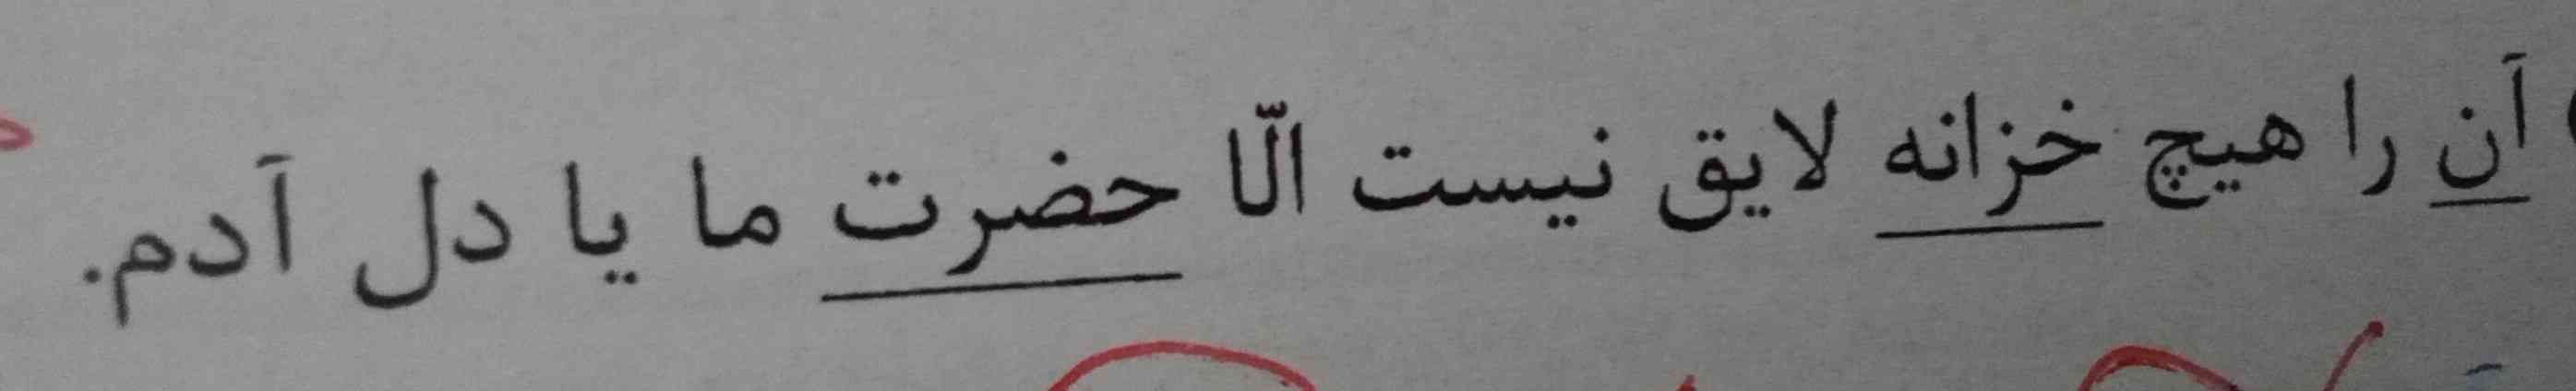 آن را هیچ خزانه لایق نیست الّا حضرت ما یا دل آدم.